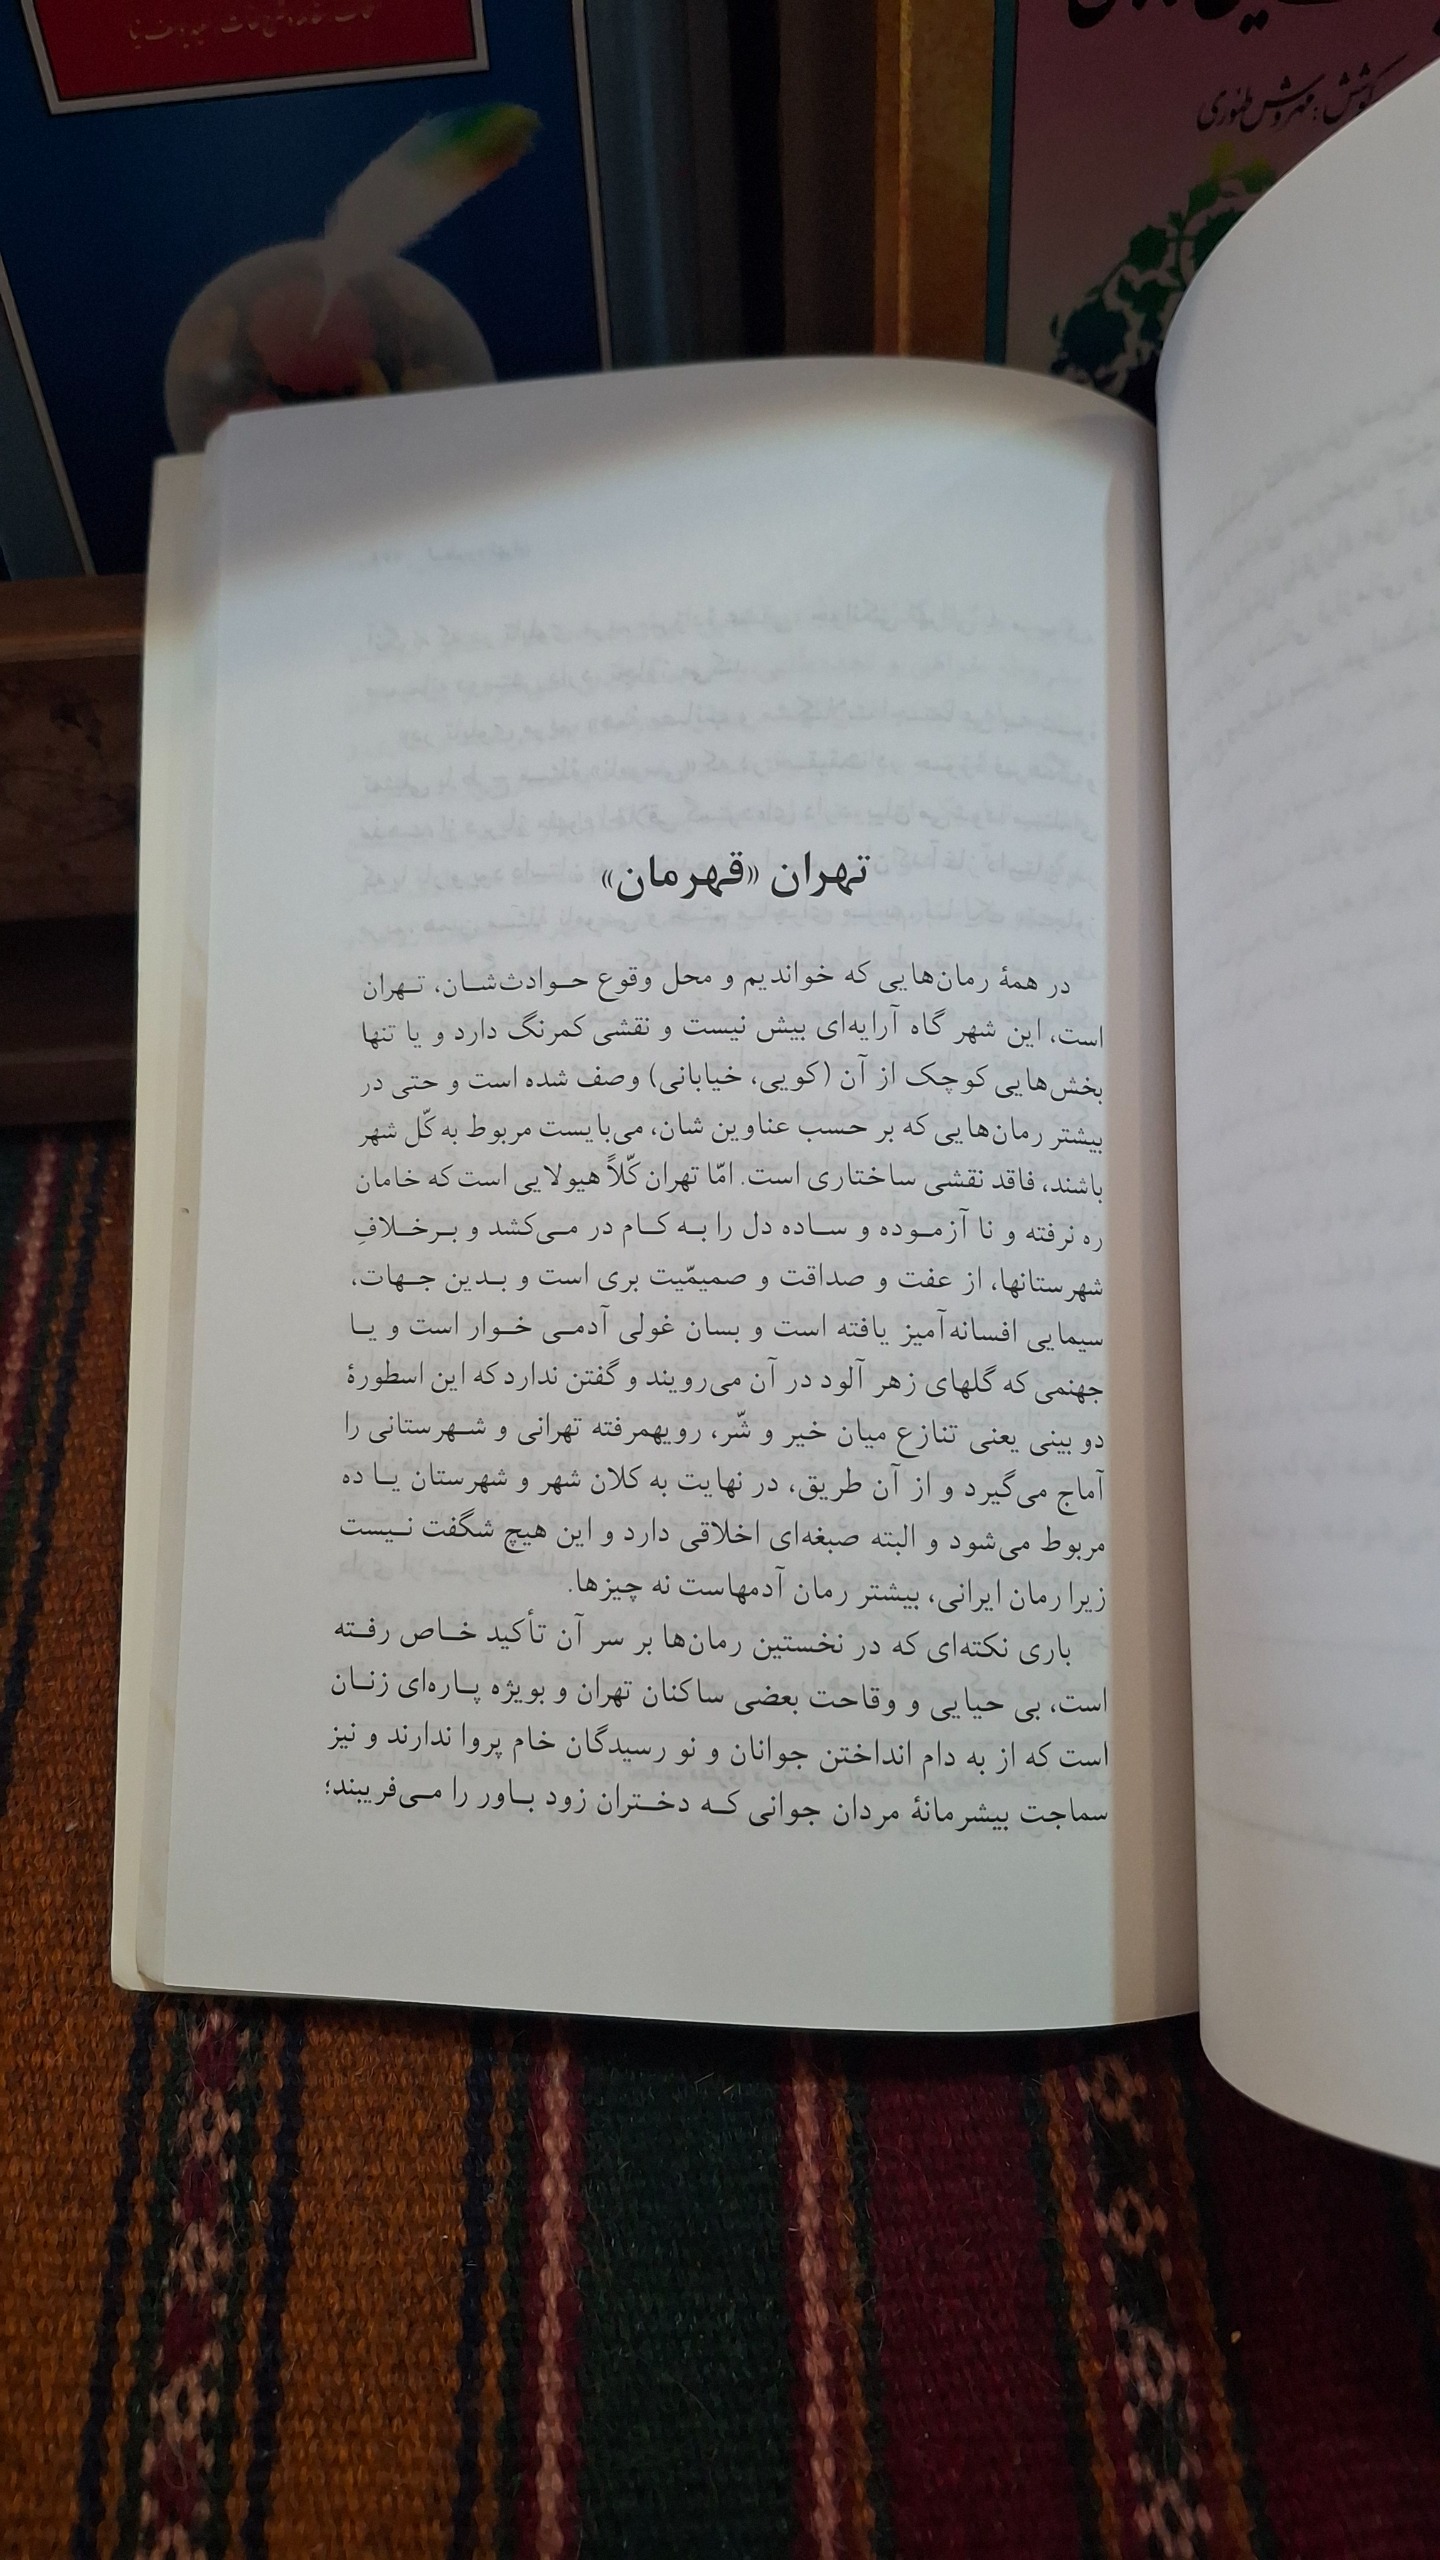 کوشش: مهروش طهوری
تهران «قهرمان»
در همهٔ رمان‌هایی که خواندیم و محل وقوع حـوادث‌شـان، تـهران
است، این شهر گاه آرایه‌ای بیش نیست و نقشی کمرنگ دارد و یا تنها
بخش‌هایی کوچک از آن (کویی، خیابانی) وصف شده است و حتی در
بیشتر رمان‌هایی که بر حسب عناوین شان، می‌بایست مربوط به کّل شهر
باشند، فاقد نقشی ساختاری است. امّا تهران کّلاً هیولایی است که خامان
ره نرفته و نا آزمـوده و سـاده دل را بـه کـام در مـی‌کشد و بـرخـلافِ
شهرستانها، از عفت و صداقت و صمیمّیت بری است و بـدین جـهات،
سیمایی افسانه‌آمیز یافته است و بسان غولی آدمـی خـوار است و یـا
جهنمی که گلهای زهر آلود در آن می‌رویند و گفتن ندارد که این اسطورهٔ
دو بینی یعنی تنازع میان خیر و شّر، رویهمرفته تهرانی و شـهرستانی را
آماج می‌گیرد و از آن طریق، در نهایت به کلان شهر و شهرستان یـا ده
مربوط می‌شود و البته صبغه‌ای اخلاقی دارد و این هیچ شگفت نـیست
زیرا رمان ایرانی، بیشتر رمان آدمهاست نه چیزها.
باری نکته‌ای که در نخستین رمان‌ها بر سر آن تأکید خـاص رفـته
است، بی حیایی و وقاحت بعضی ساکنان تهران و بویژه پـاره‌ای زنـان
است که از به دام انداختن جوانان و نو رسیدگان خام پروا ندارند و نیز
سماجت بیشرمانهٔ مردان جوانی کـه دخـتران زود بـاور را مـی‌فریبند؛